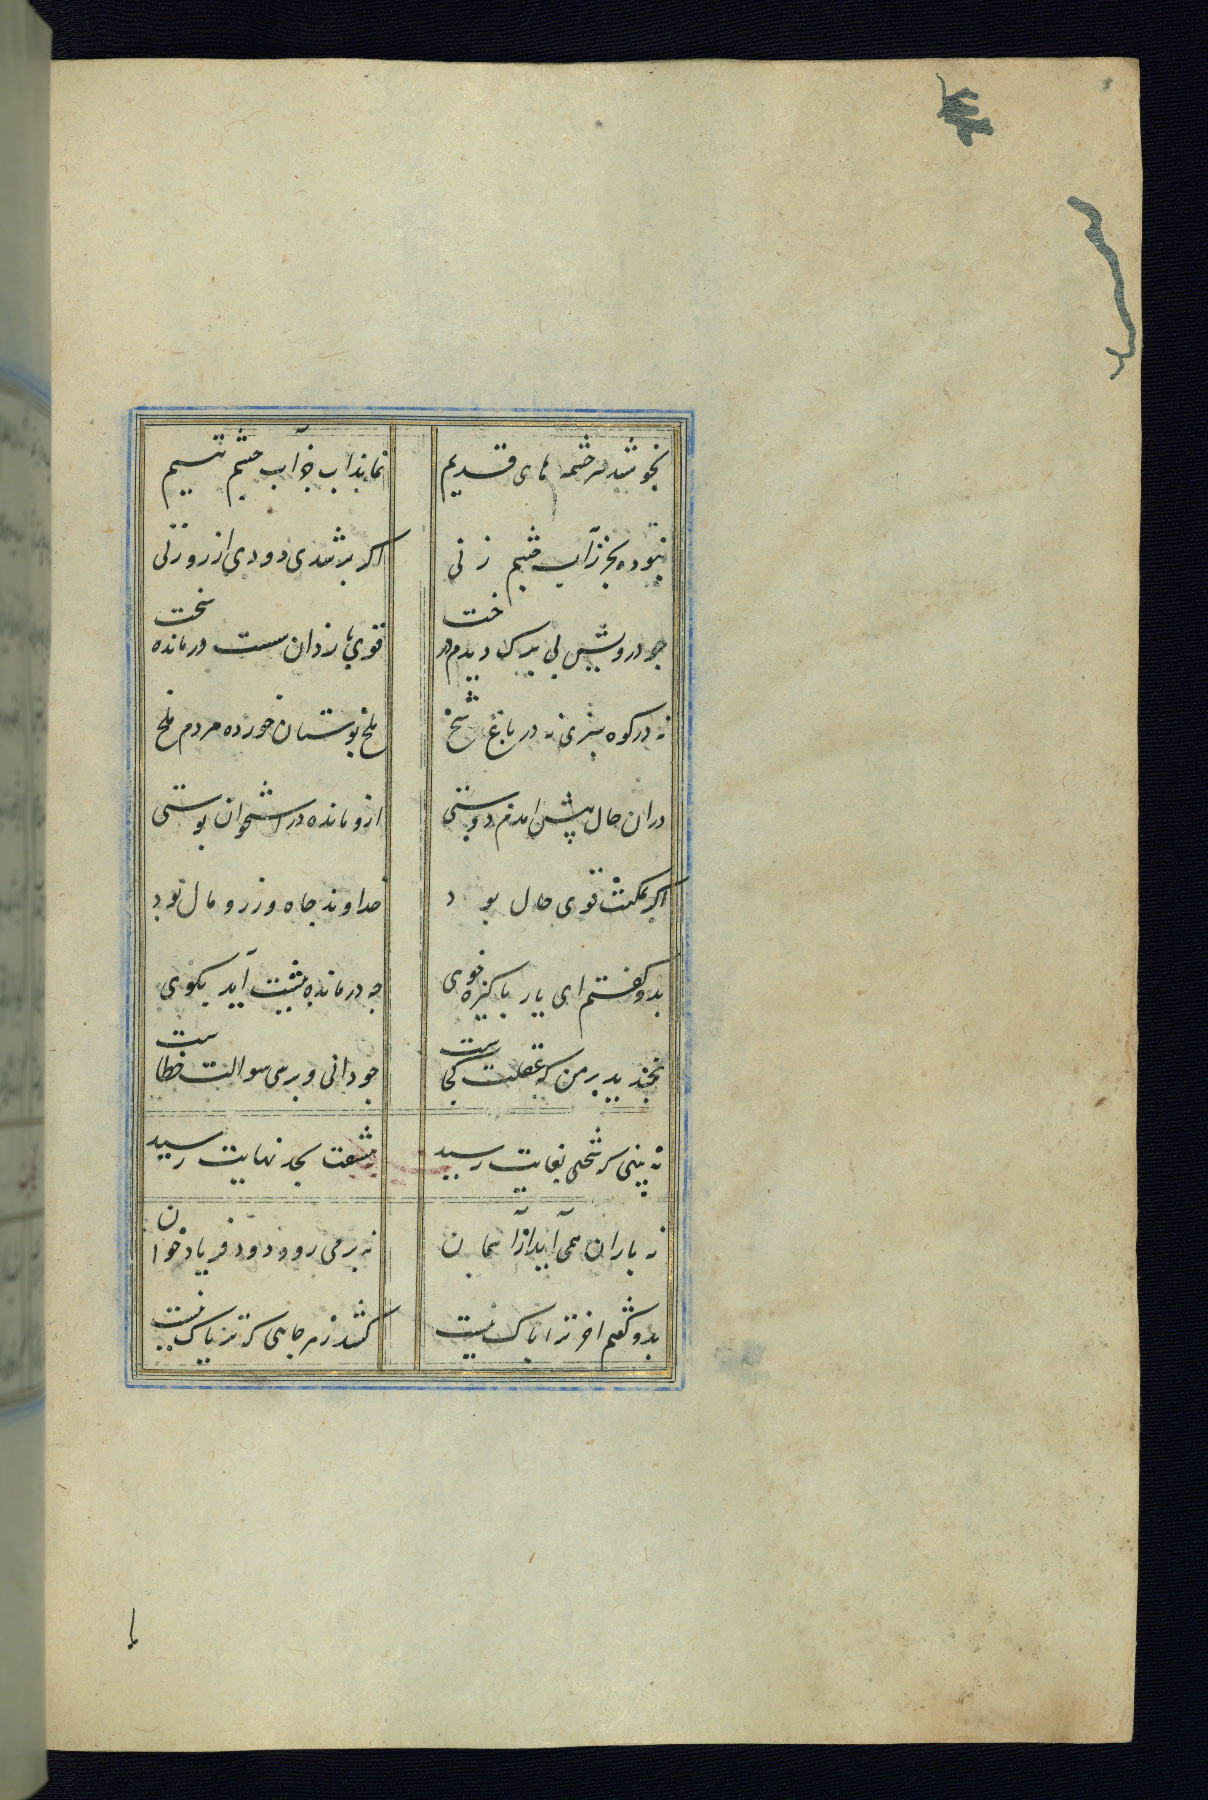 بخوشید سرچشمه های قدیم نماند آب جز آب چشم یتیم
نبوده بجز ز آب چشم زنی اکر بر شدی دودی از روزنی
چو درویش بی برک دیدم درخت قوی بازوان سست درمانده سخت
نه در کوه سبزی نه در باغ شخ ملخ بوستان خورده مردم ملخ
دران حال پیش امدم دوستی ازو مانده در استخوان پوستی
اکر بمکنت قوی حال بود خداوند جاه و زر و مال بود
بدو کفتم ای یار پاکیزه خوی چه درماندکی پیشت آید بکوی
بخندید بر من که عقلت کجاست چو دانی و پرسی سوالت خطاست
نه بینی که سختی بغایت رسید مشقت بحد نهایت رسید
نه باران همی آید از آسمان نه بر می رود دود فریاد خوان
بدو کفتم اخر ترا باک نیست کشد زهر جایی که تریاک نیست